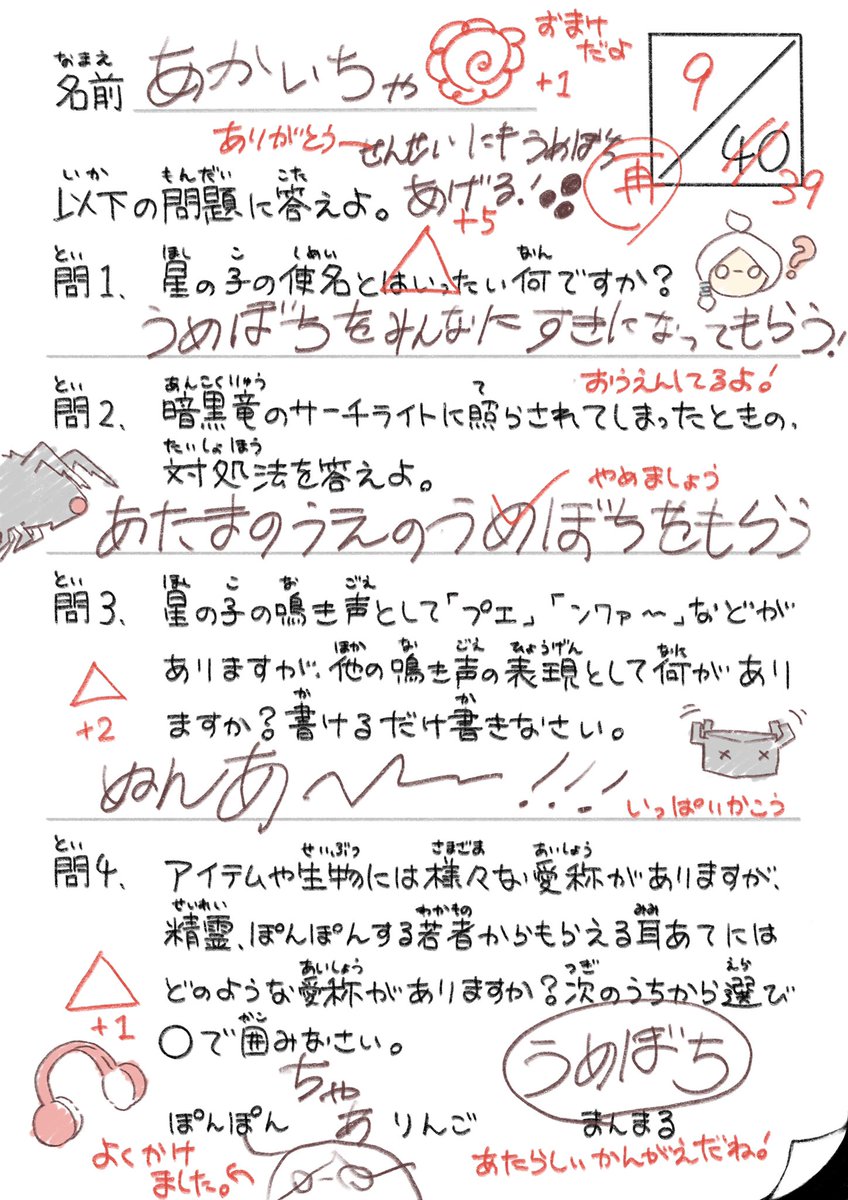 名前 あかいちゃ
なまえ
おまけ
だよ
+1
9
40
39
再
ありがとう
せんせいにもうめぼち
あげる!
+5
いか もんだい こた
以下の問題に答えよ。
とい ほし こ しめい なん
問1、星の子の使名とはいったい何ですか?
?
うめぼちをみんなにすきになってもらう!
おうえんしてるよ!
とい あんこくりゅう て
問2、暗黒竜のサーチライトに照らされてしまったときの、
たいしょほう
対処法を答えよ。
やめましょう
あたまのうえのうめぼちをもらう
とい ほし こ な ごえ
問3、星の子の鳴き声として「プェ」「ンワァ〜」などが
ほか な ごえ ひょうげん なに
ありますが、他の鳴き声の表現として何があり
か か
ますか?書けるだけ書きなさい。
+2
ぬんあ〜〜!!!
いっぱいかこう
とい せいぶつ さまざま あいしょう
問4、アイテムや生物には様々な愛称がありますが、
せいれい わかもの みみ
精霊、ぽんぽんする若者からもらえる耳あてには
あいしょう つぎ えら
どのような愛称がありますか?次のうちから選び
かこ
○で囲みなさい。
+1
うめぼち
ちゃ
あ
ぽんぽん りんご まんまる
よくかけ
ました。
あたらしいかんがえだね!